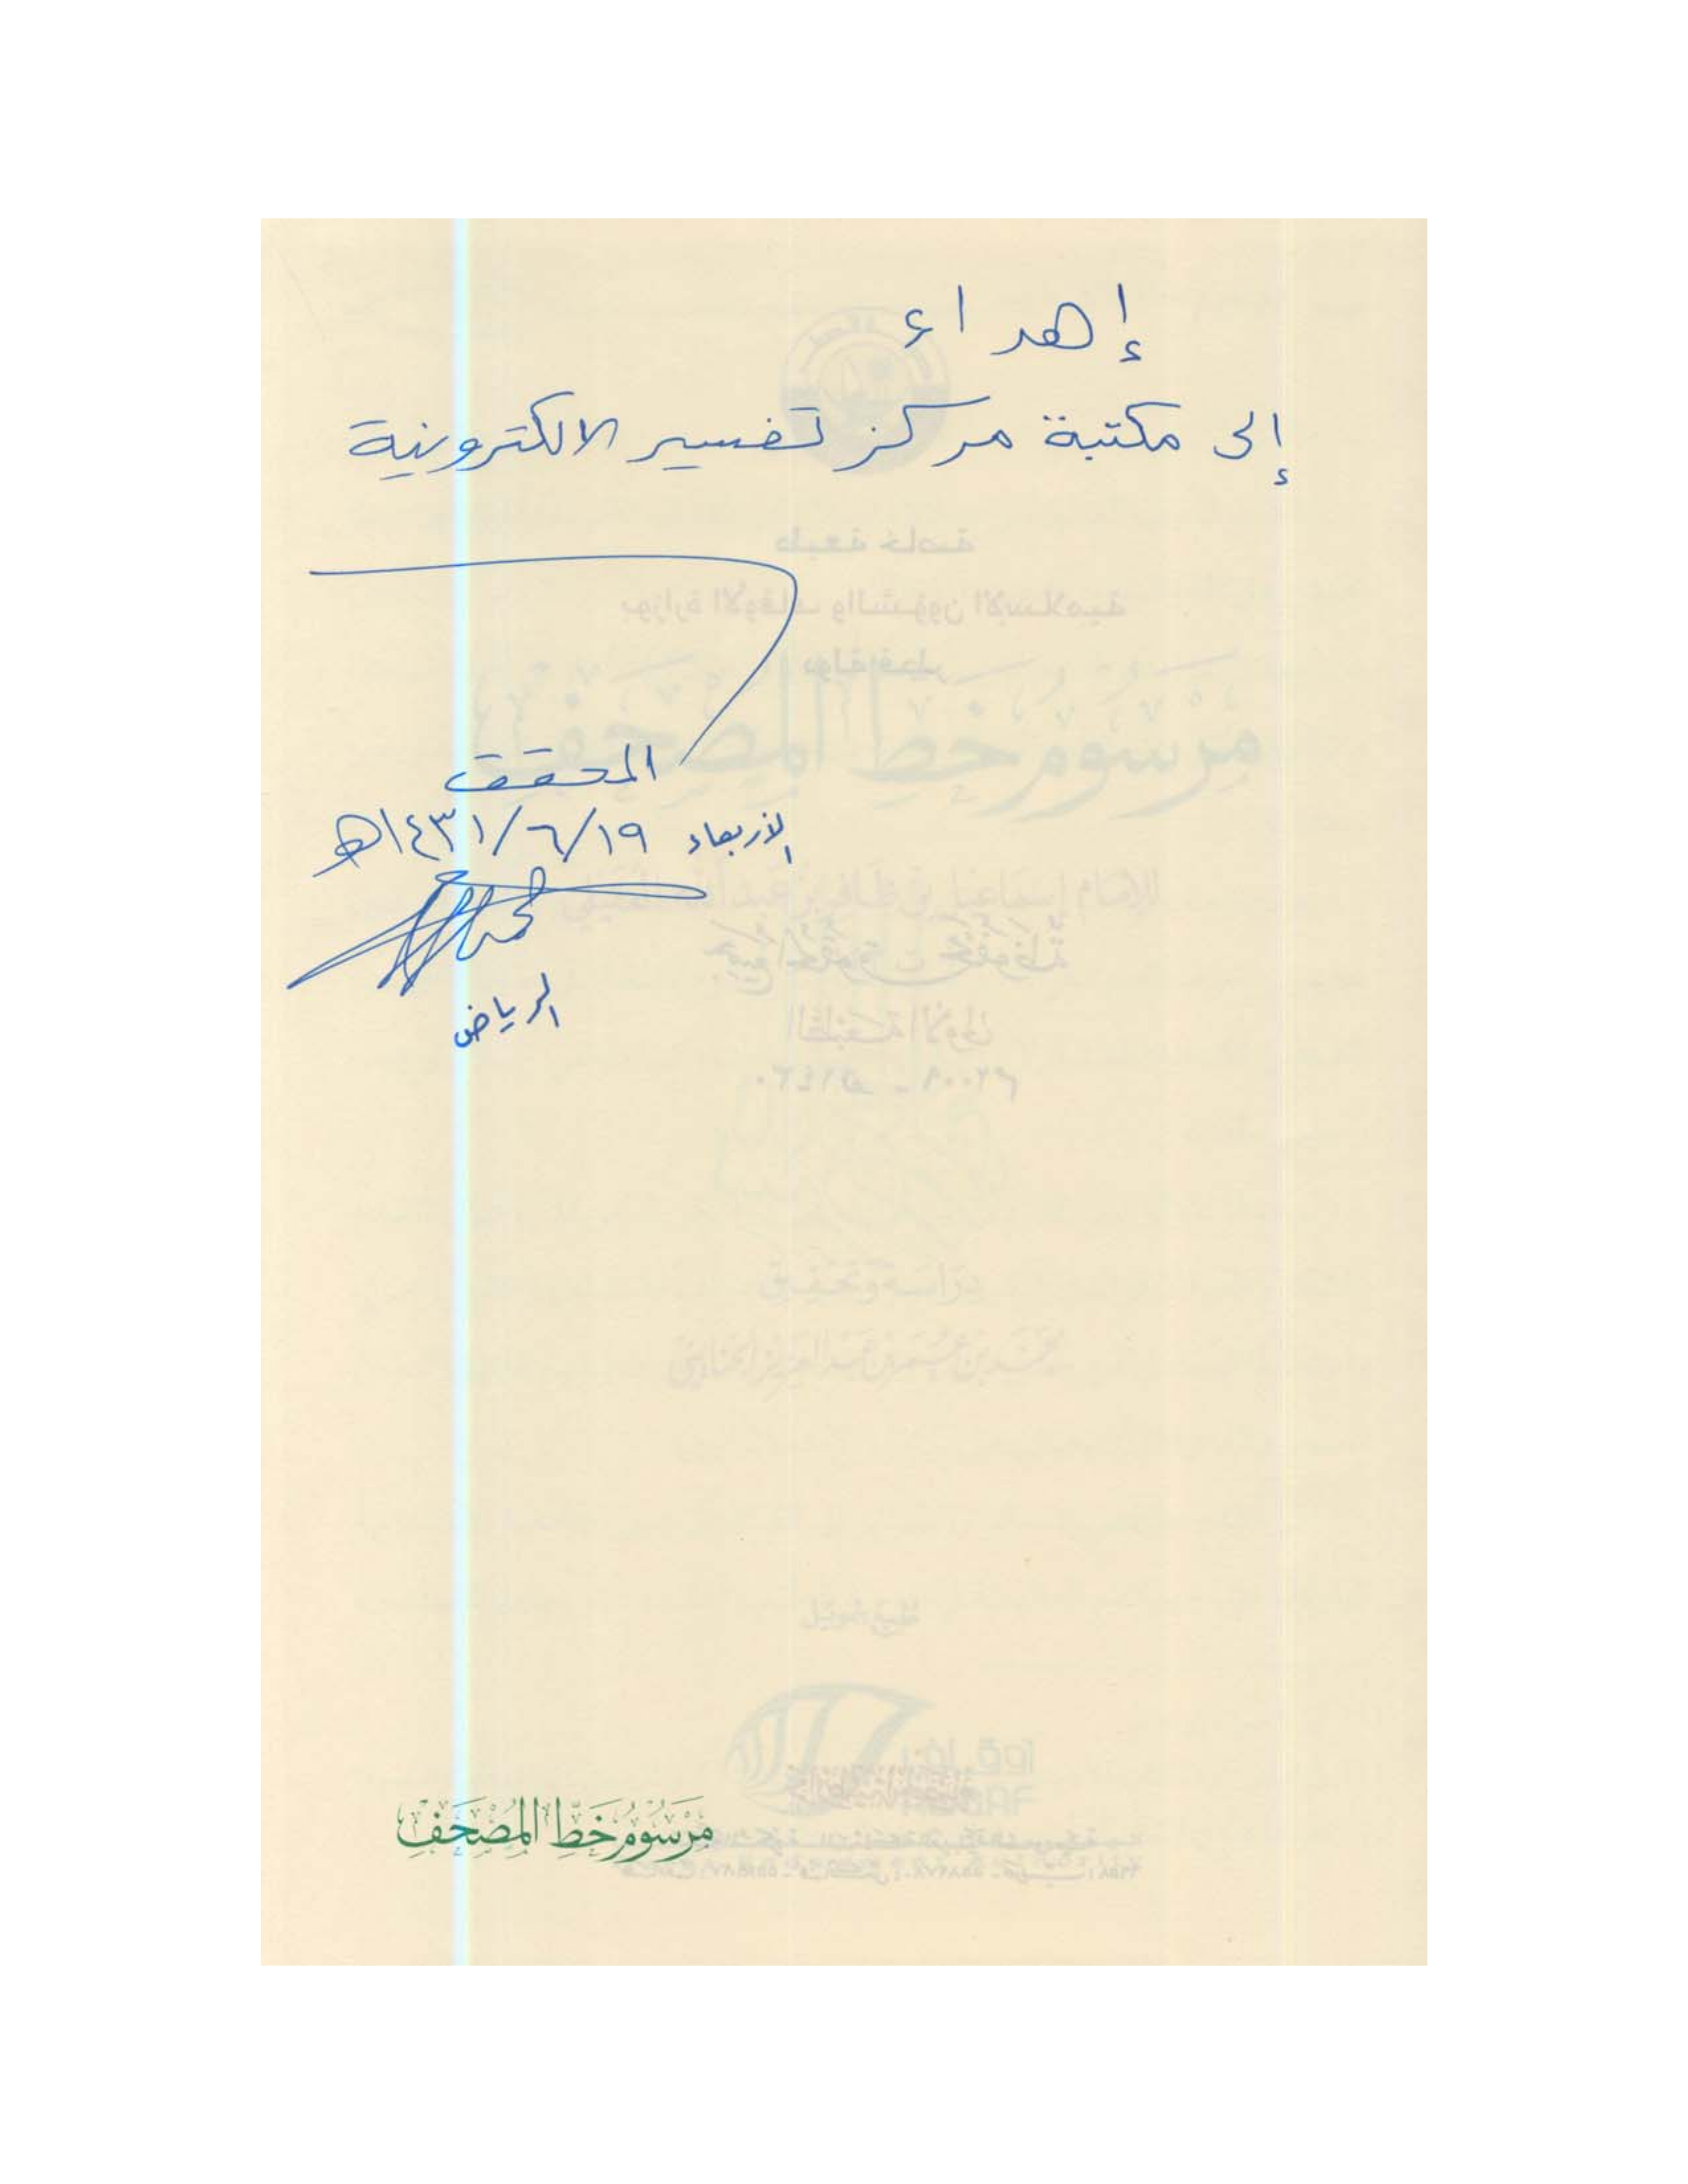 إهداء
إلى مكتبة مركز تفسير الالكترونية
المحقق
الأربعاء ١٩/٦/١٤٣١هـ
الرياض
مَرْسُومُ خَطِّ المُصْحَفِ